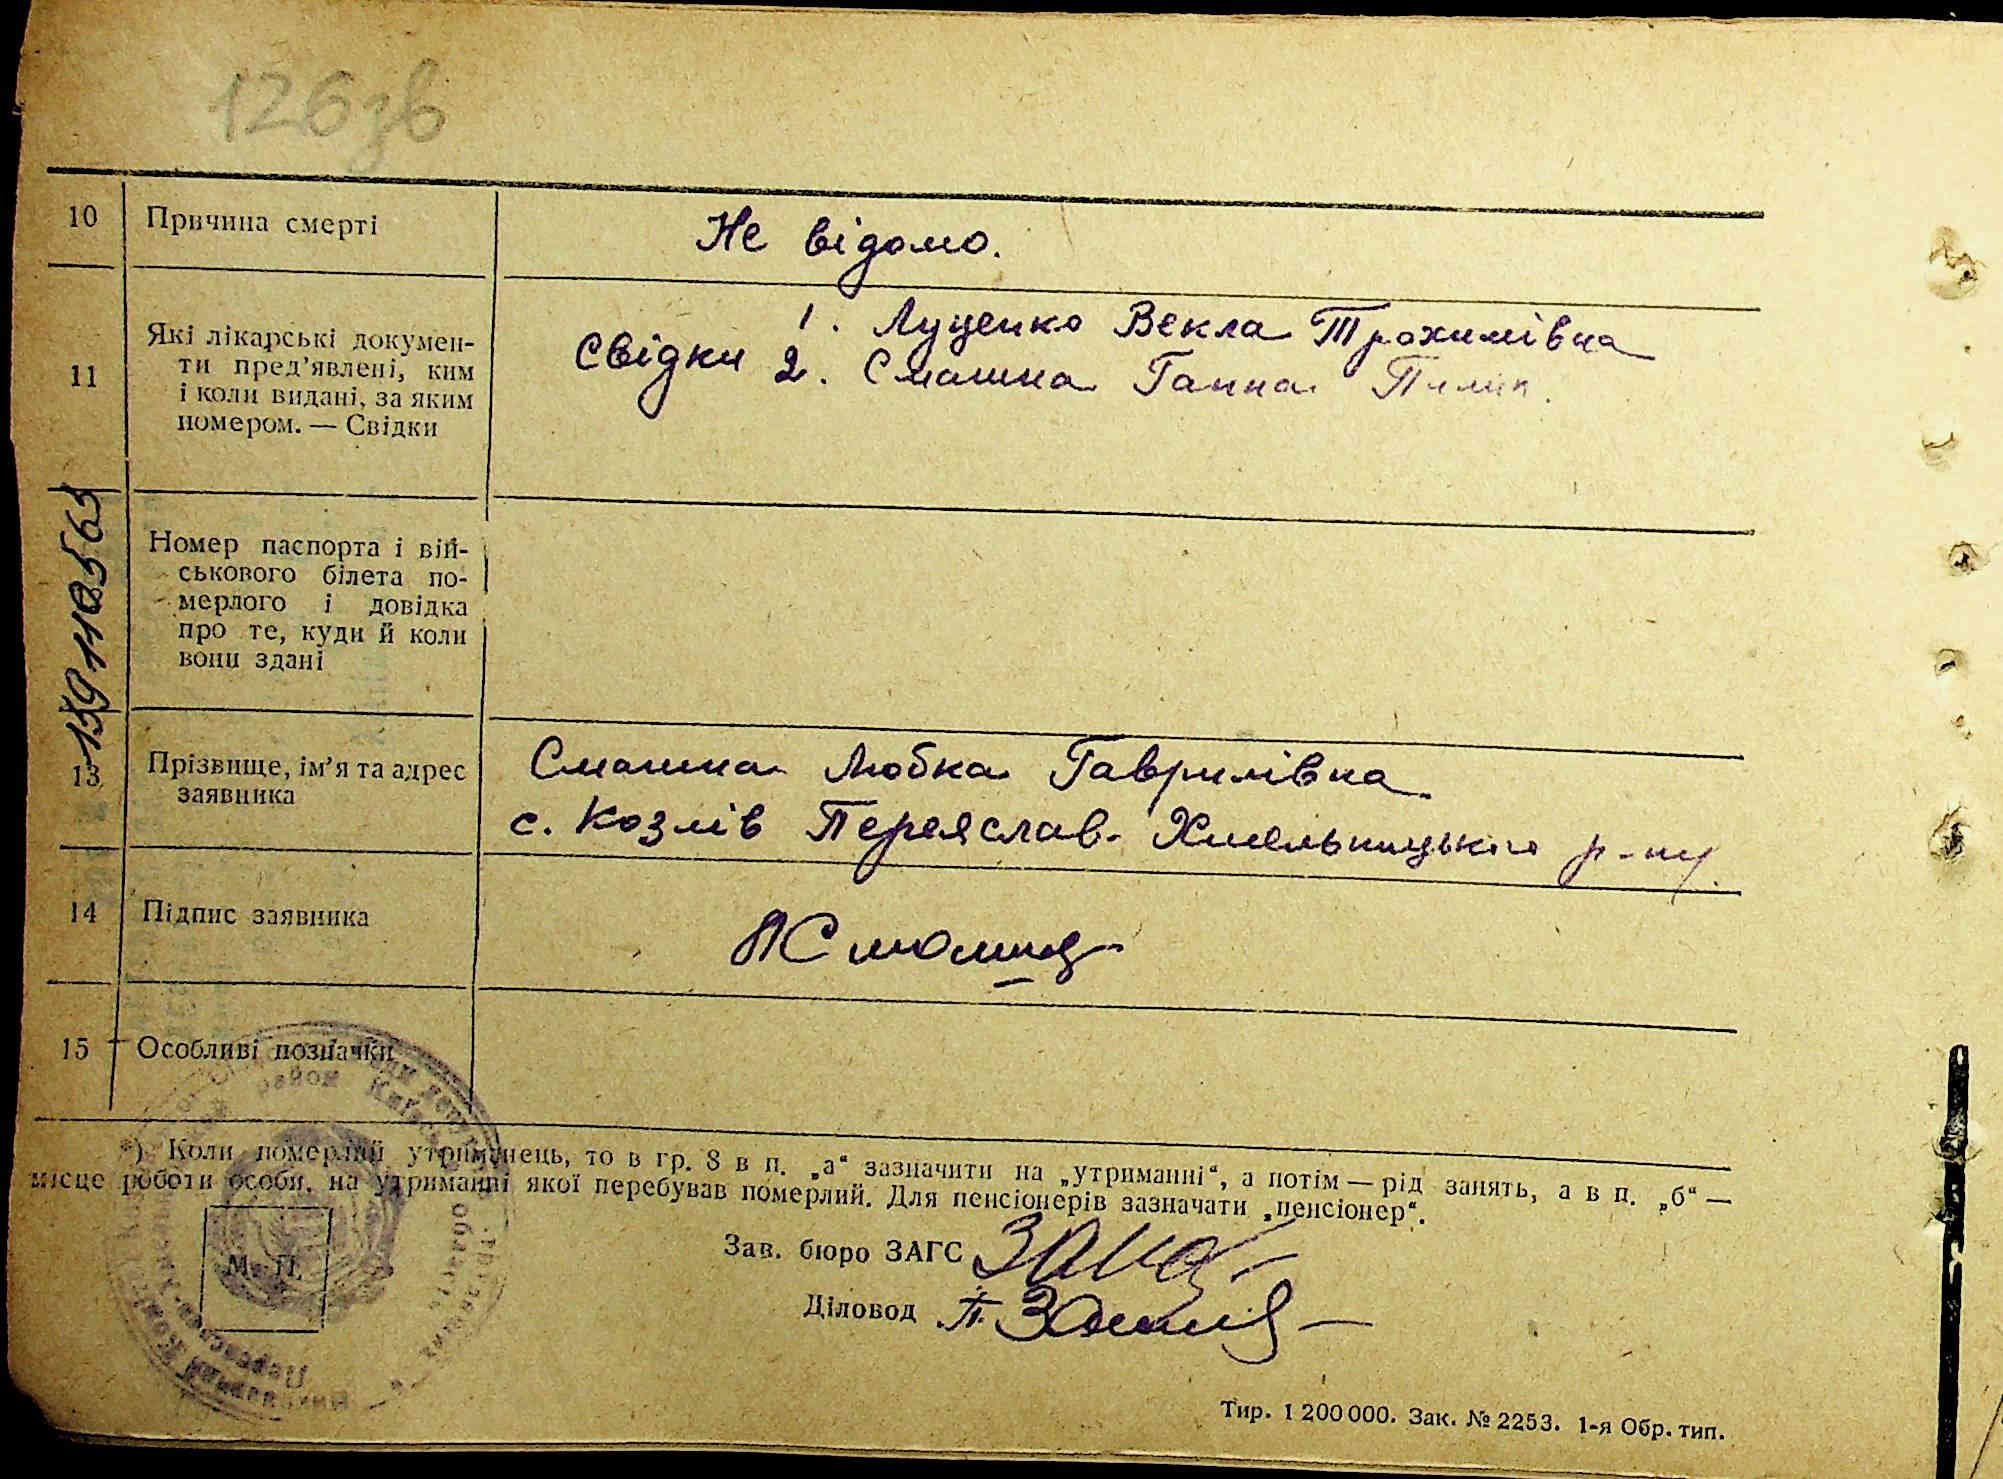 126 зв
10 Причина смерті Не відомо.
11 Які лікарські докумен-
ти пред'явлені, ким
і коли видані, за яким
номером. — Свідки
1. Луценко Векла Трохимівна
Свідки 2. Смашна Ганна Пилип.
Номер паспорта і вій-
ськового білета по-
мерлого і довідка
про те, куди й коли
вони здані
13 Прізвище, ім'я та адрес
заявника
Смашна Любка Гаврилівна
с. Козлів Переяслав-Хмельницького р-ну.
14 Підпис заявника
15 Особливі позначки
*) Коли померлий утриманець, то в гр. 8 в п. „а“ зазначити на „утриманні“, а потім — рід занять, а в п. „б“ —
місце роботи особи, на утриманні якої перебував померлий. Для пенсіонерів зазначати „пенсіонер“.
Зав. бюро ЗАГС
Діловод
М. П.
Тир. 1 200 000. Зак. № 2253. 1-я Обр. тип.